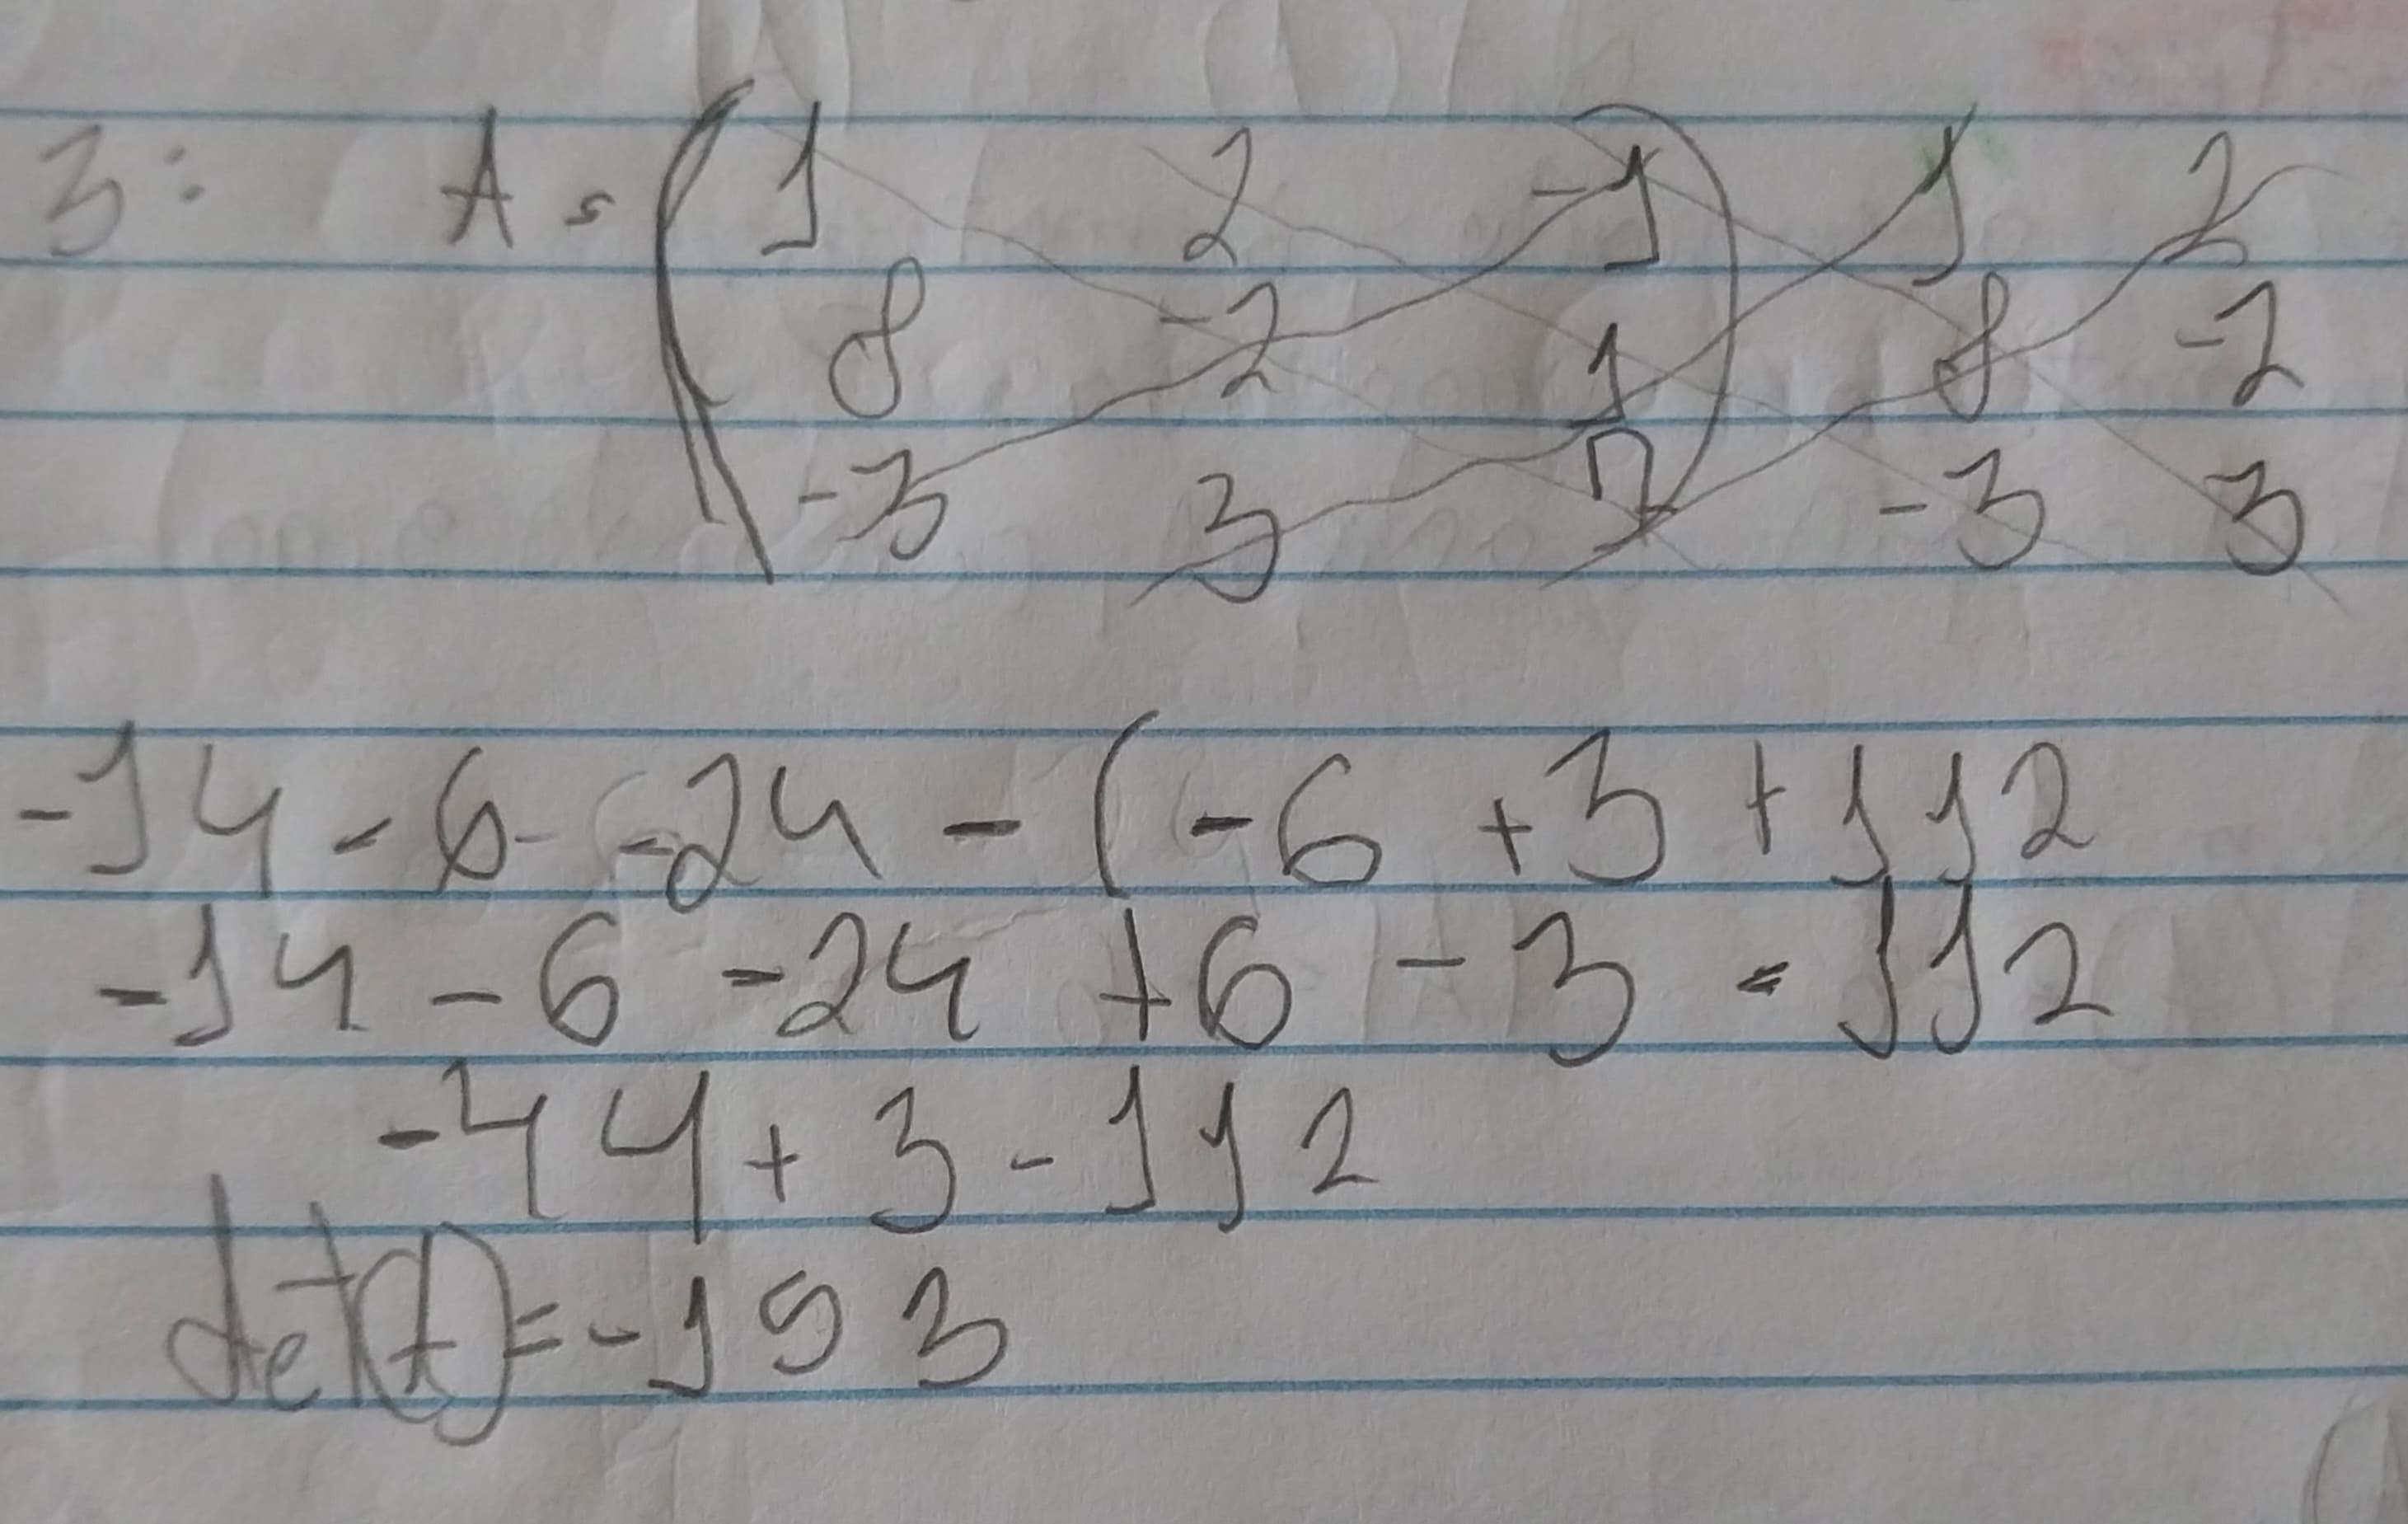 3: A = ( 1 2 -1 ) 1 2
8 -2 1 8 -2
-3 3 7 -3 3
-14 - 6 -24 - ( -6 + 3 + 112
-14 - 6 -24 + 6 - 3 - 112
-44 + 3 - 112
det(A) = -153